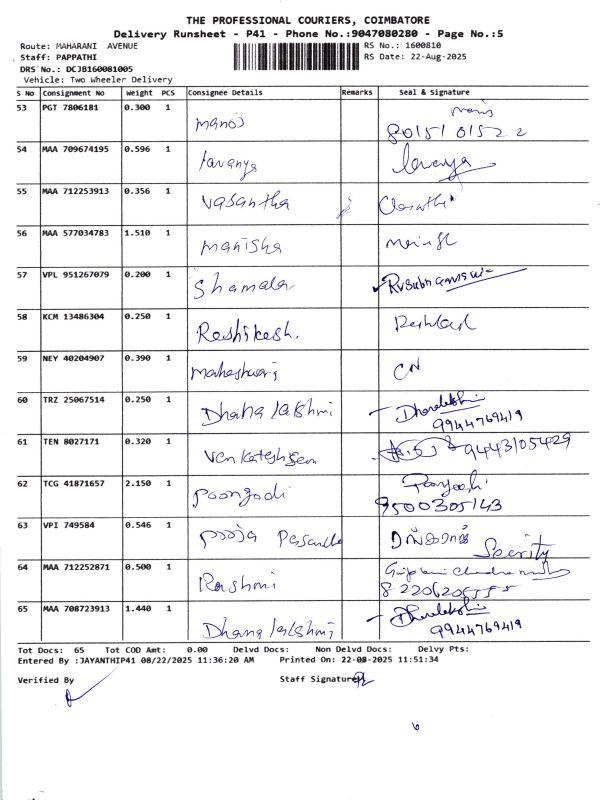 THE PROFESSIONAL COURIERS, COIMBATORE
Delivery Runsheet - P41 - Phone No.:9047080280 - Page No.:5
Route: MAHARANI AVENUE RS No.: 1600810
Staff: PAPPATHI RS Date: 22-Aug-2025
DRS No.: DCJB160081005
Vehicle: Two Wheeler Delivery
S No Consignment No Weight PCS Consignee Details Remarks Seal & Signature
53 PGT 7806181 0.300 1 manoj
8015101522
54 MAA 709674195 0.596 1 lavanya lavanya
55 MAA 712253913 0.356 1 vasantha
56 MAA 577034783 1.510 1 manisha
57 VPL 951267079 0.200 1 Shamala
58 KCM 13486304 0.250 1 Reshikesh.
59 NEY 40204907 0.390 1 maheshwari CN
60 TRZ 25067514 0.250 1 Dhana lakshmi Dhanalakshmi
9944769419
61 TEN 8027171 0.320 1 9443105429
62 TCG 41871657 2.150 1 poongodi
9500305143
63 VPI 749584 0.546 1 pooja
Secrity
64 MAA 712252871 0.500 1 Rashmi
65 MAA 708723913 1.440 1 Dhana lakshmi Dhanalakshmi
9944769419
Tot Docs: 65 Tot COD Amt: 0.00 Delvd Docs: Non Delvd Docs: Delvy Pts:
Entered By :JAYANTHIP41 08/22/2025 11:36:20 AM Printed On: 22-08-2025 11:51:34
Verified By Staff Signature